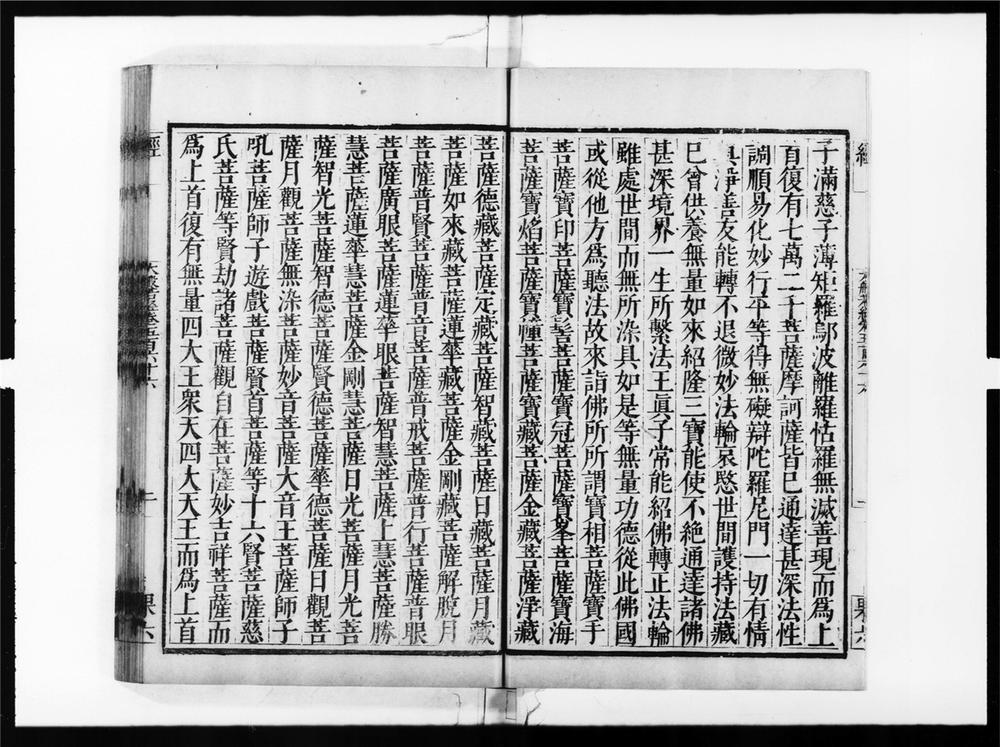 子滿慈子薄矩羅鄔波離羅怙羅無滅善現而爲上
首復有七萬二千菩薩摩訶薩皆已通達甚深法性
調順易化妙行平等得無礙辯陀羅尼門一切有情
眞淨善友能轉不退微妙法輪哀愍世間護持法藏
已曾供養無量如來紹隆三寶能使不絶通達諸佛
甚深境界一生所繫法王眞子常能紹佛轉正法輪
雖處世間而無所染具如是等無量功德從此佛國
或從他方爲聽法故來詣佛所所謂寶相菩薩寶手
菩薩寶印菩薩寶髻菩薩寶冠菩薩寶峯菩薩寶海
菩薩寶焰菩薩寶幢菩薩寶藏菩薩金藏菩薩淨藏
菩薩德藏菩薩定藏菩薩智藏菩薩日藏菩薩月藏
菩薩如來藏菩薩蓮華藏菩薩金剛藏菩薩解脫月
菩薩普賢菩薩普音菩薩普戒菩薩普行菩薩普眼
菩薩廣眼菩薩蓮華眼菩薩智慧菩薩上慧菩薩勝
慧菩薩蓮華慧菩薩金剛慧菩薩日光菩薩月光菩
薩智光菩薩智德菩薩賢德菩薩華德菩薩日觀菩
薩月觀菩薩無染菩薩妙音菩薩大音王菩薩師子
吼菩薩師子遊戲菩薩賢首菩薩等十六賢菩薩慈
氏菩薩等賢劫諸菩薩觀自在菩薩妙吉祥菩薩而
爲上首復有無量四大王衆天四大天王而爲上首
經
果六